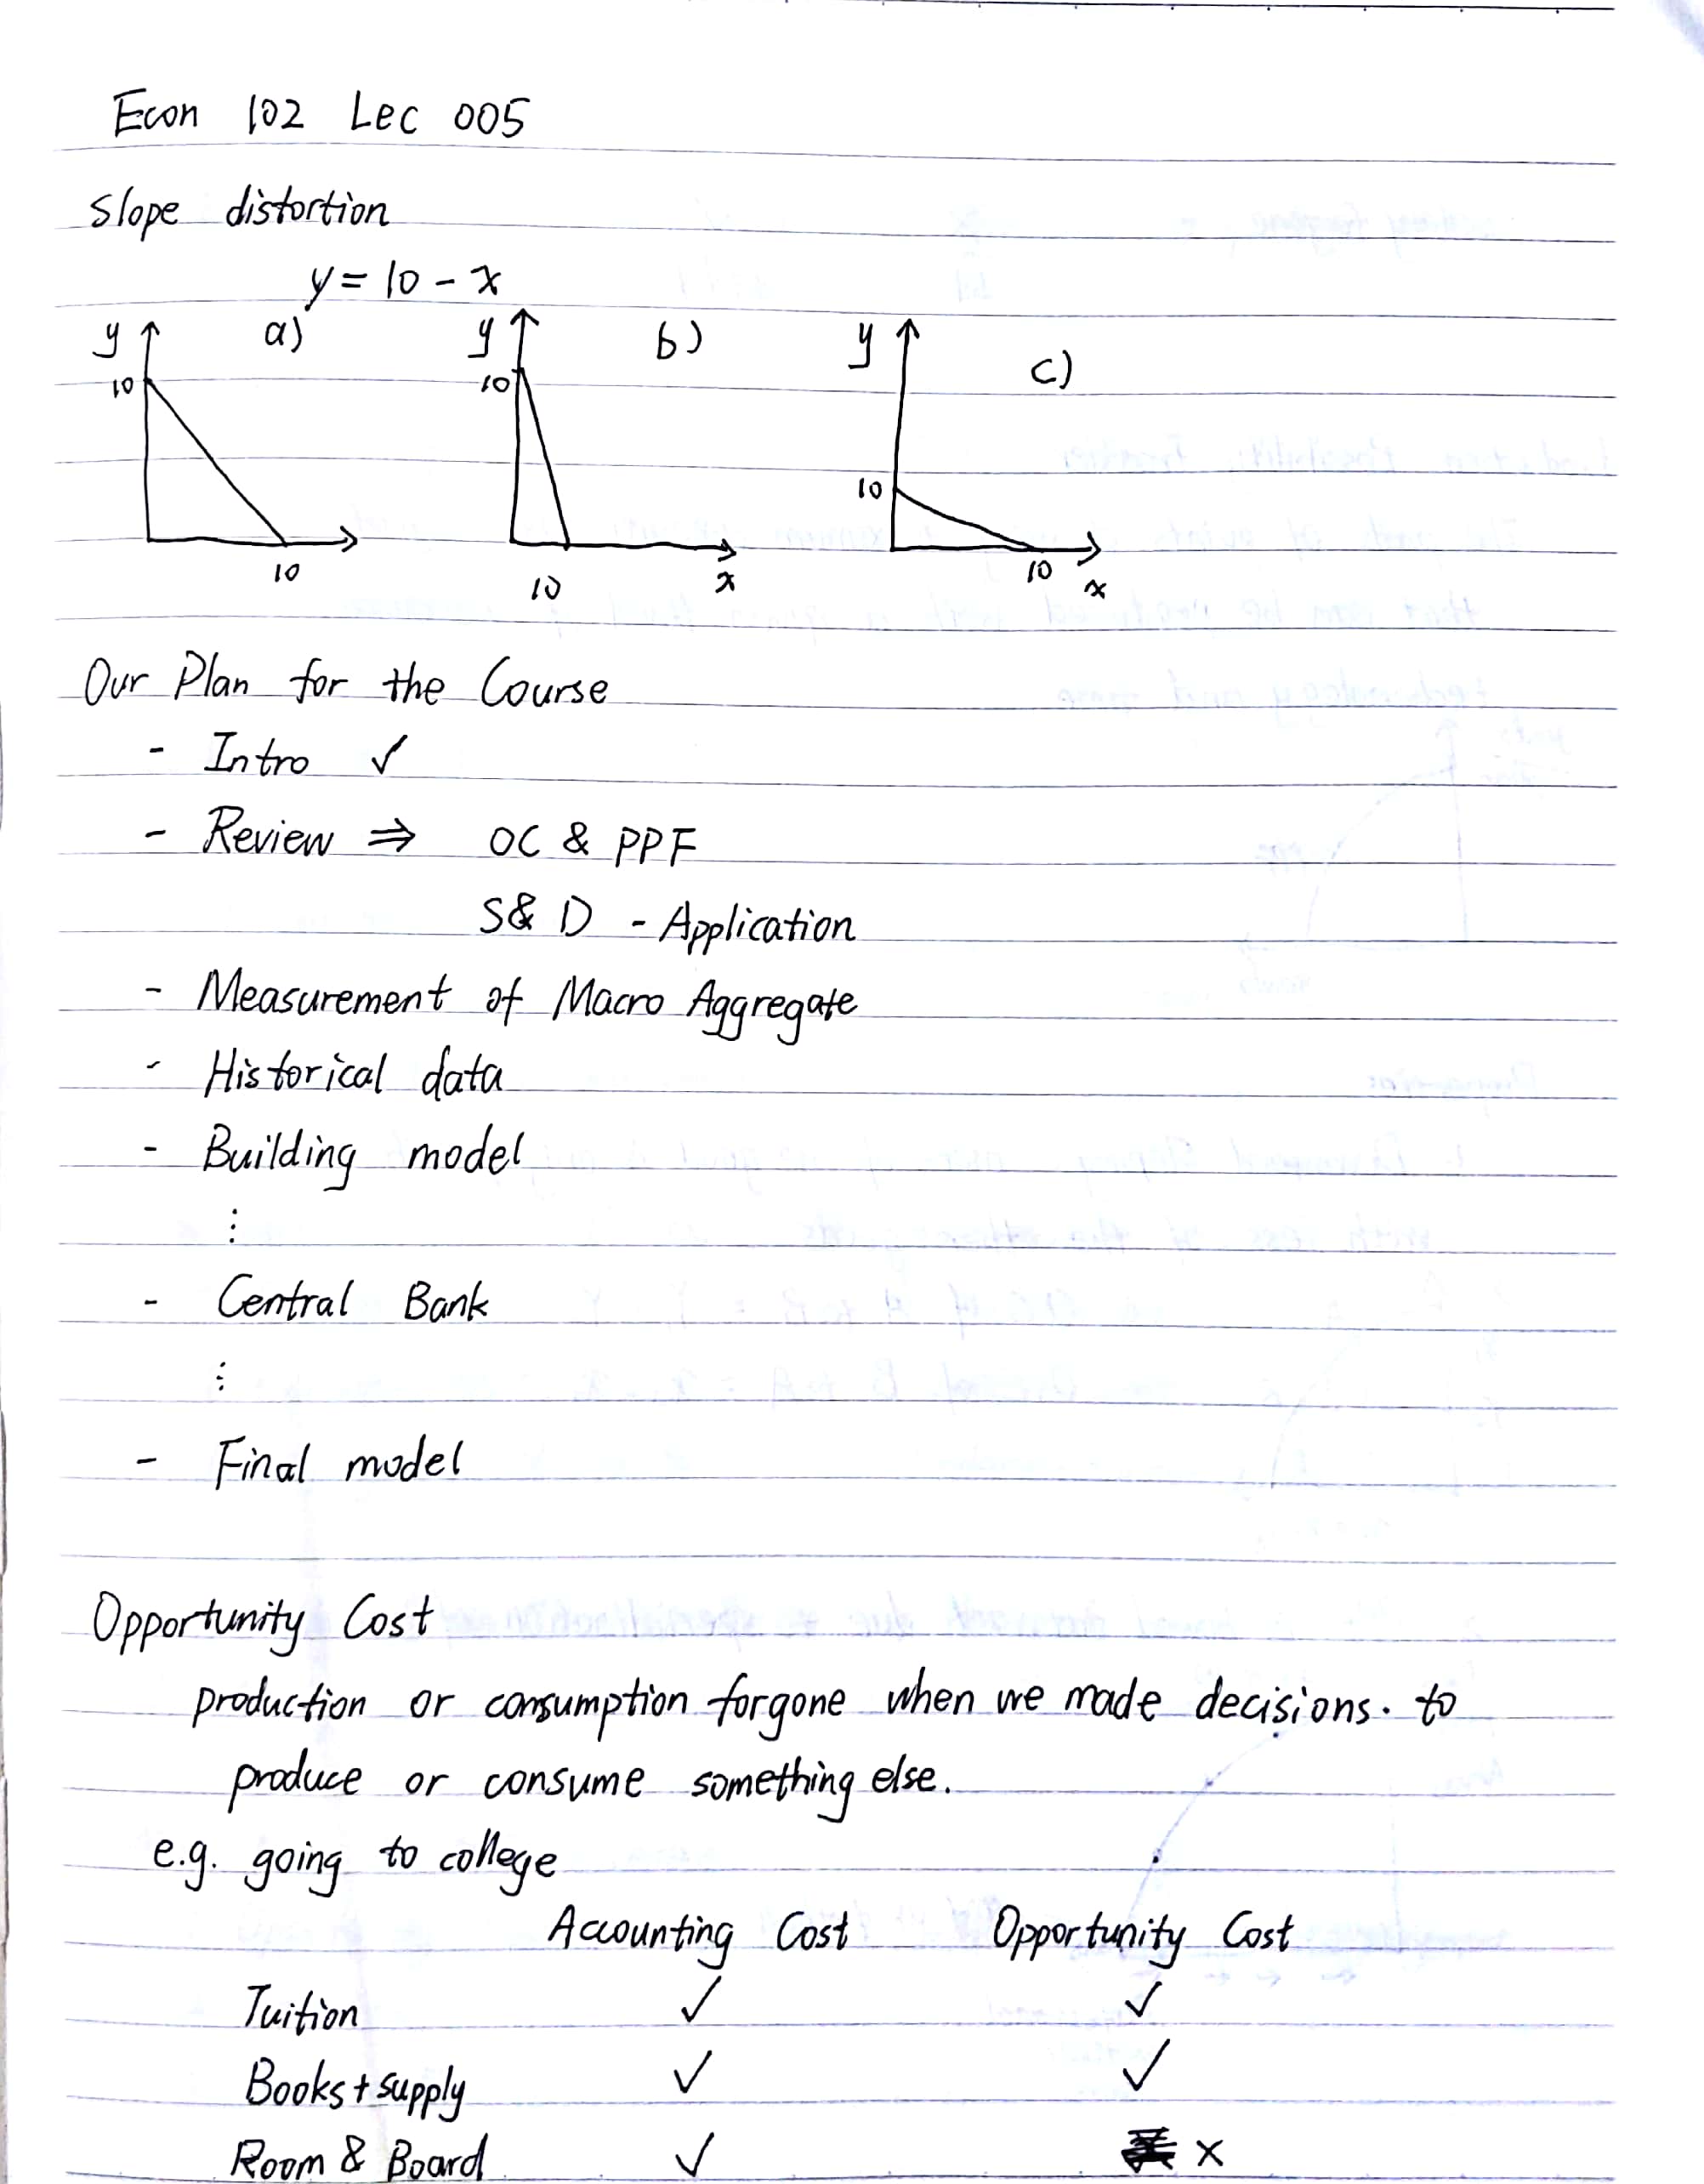 Econ 102 Lec 005
Slope distortion
y = 10 - x
y a) y b) y c)
10 10 10
10 10 x 10 x
Our Plan for the Course
- Intro ✓
- Review ⇒ OC & PPF
S & D - Application
- Measurement of Macro Aggregate
- Historical data
- Building model
⋮
- Central Bank
⋮
- Final model
Opportunity Cost
production or consumption forgone when we made decisions. to
produce or consume something else.
e.g. going to college
Accounting Cost Opportunity Cost
Tuition ✓ ✓
Books + supply ✓ ✓
Room & Board ✓ x